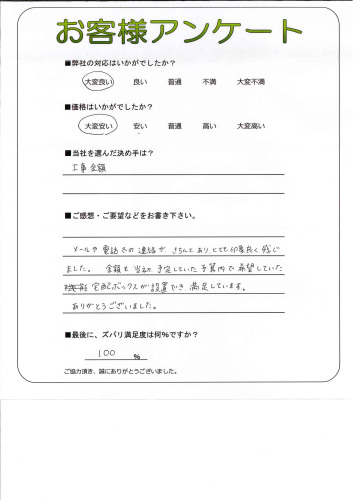 お客様アンケート
■弊社の対応はいかがでしたか？
大変良い 良い 普通 不満 大変不満
■価格はいかがでしたか？
大変安い 安い 普通 高い 大変高い
■当社を選んだ決め手は？
工事金額
■ご感想・ご要望などをお書き下さい。
メールや電話での連絡がきちんとありとても印象良く感じ
ました。金額も当初予定していた予算内で希望していた
機能宅配ボックスが設置でき、満足しています。
ありがとうございました。
■最後に、ズバリ満足度は何%ですか？
100 %
ご協力頂き、誠にありがとうございました。